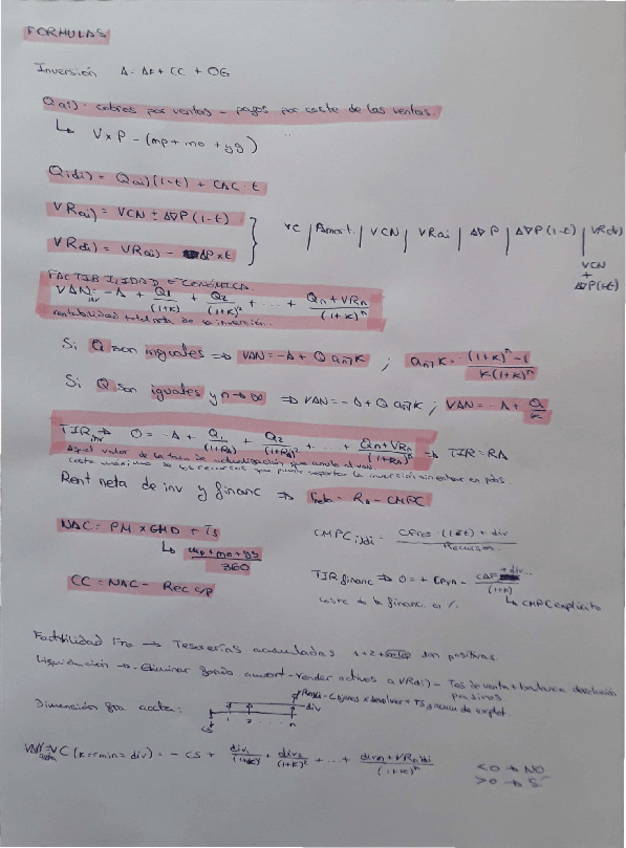 FORMULAS
Inversión A = AF + CC + OG
Qai) = cobros por ventas - pagos por coste de las ventas.
↳ V x P - (mp + mo + gg)
Qdi) = Qai)(1-t) + CAC · t
VRai) = VCN ± Δ∇P (1-t)
VRdi) = VRai) - ΔP x t
VC | Amort. | VCN | VRai | Δ∇P | Δ∇P (1-t) | VRdi)
VCN
+
Δ∇P(1-t)
FACTIBILIDAD ECONÓMICA.
VAN inv = -A + Q1/(1+K) + Q2/(1+K)² + .... + Qn+VRn/(1+K)ⁿ
rentabilidad total neta de la inversión.
Si Q son iguales => VAN = -A + Q an¬K ; an¬K = (1+K)ⁿ-1/K(1+K)ⁿ
Si Q son iguales y n→∞ => VAN = -A + Q an¬K ; VAN = -A + Q/K
TIR inv => 0 = -A + Q1/(1+RA) + Q2/(1+RA)² + ... + Qn+VRn/(1+RA)ⁿ => TIR = RA
Aquel valor de la tasa de actualización que anula el VAN
coste máximo de los recursos que puede soportar la inversión sin entrar en pdas.
Rent neta de inv y financ => = RA - CMPC
NAC = PM x GMD + TS
↳ mp+mo+gg/360
CMPC = · (1-t) + div/Recursos
CC = NAC - Rec c/p
TIR financ => 0 = +
/(1+K)
↳ CMPC explícito
coste de la financ. en %.
Factibilidad Fra → Tesorerías acumuladas 1+2+ son positivas.
Liquidación → Eliminar fondo amort - vender activos a VRdi) -
Dimensión fra accta:
div
cs 1 2 .... n
VC (K = cmin = div) = - CS + div1/(1+K) + div2/(1+K)² + ... + divn + VRn/(1+K)ⁿ
<0 → NO
>0 → SÍ